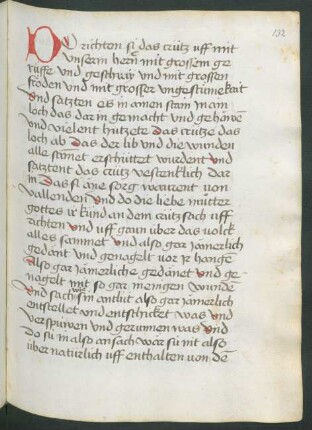 132
Do richten sy das crütz uff mit
unserm hern mit grossem ge
rüffe und geschray und mit grossen
fröden und mit grosser ungestimekait
und satzten es in amen stain in ain
loch das dar in gemacht und gehowē
und vielent das crütze das
loch ab das der lib und die wunden
alle erschüttet wurdent und
satztent das crütz vestenklich dar
in das sy āne sorg werent von
vallenden und do die liebe mütter
gottes ir kind an dem crütz sach uff
richten und uff gaun über das volck
alles sammet und also gar jämerlich
gedent und genagelt vor ir hangē
also gar jämerliche gedēnet und ge-
nagelt mit so gar mengen wunden
und sach sin antlit also gar jämerlich
entstellet und entschicket was und
verspüwen und gerunnen was und
do sü in also ansach wär sü nit also
über natürlich uff enthalten von dē